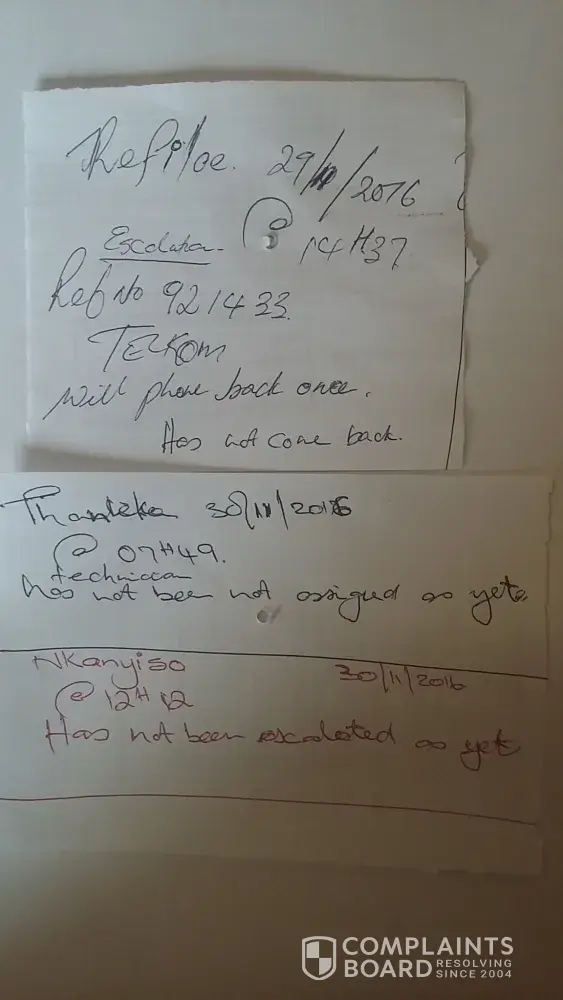 Refiloe. 29/11/2016
Escalation. @ 14H37
Ref No 921433.
TELKOM
Will phone back once.
Has not come back.
30/11/2016
@ 07H49.
technician
has not been not assigned as yet.
Nkanyiso 30/11/2016
@ 12H12
Has not been escalated as yet
COMPLAINTS
BOARD RESOLVING
SINCE 2004